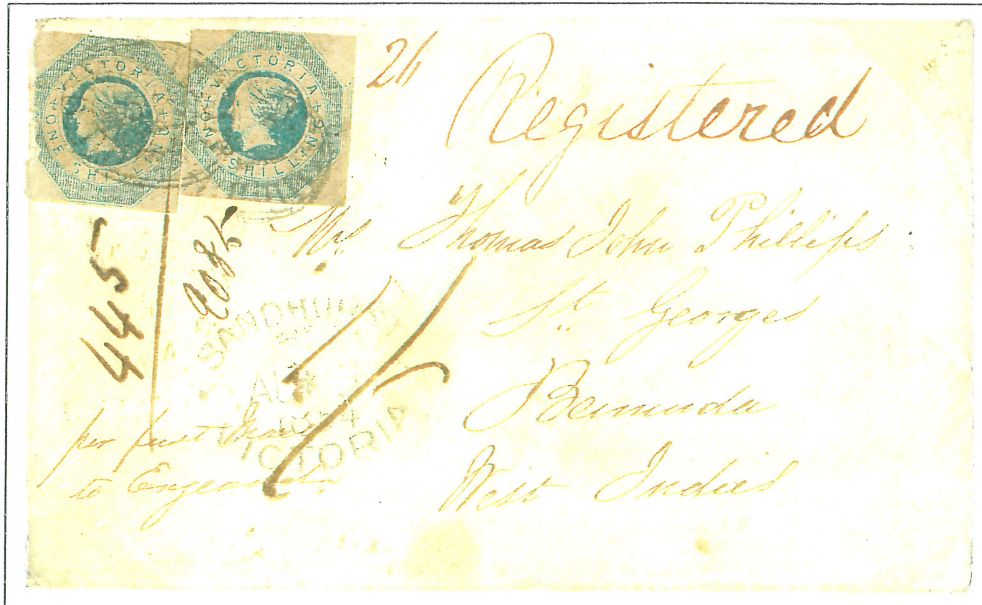 VICTORIA
ONE SHILLING
VICTORIA
ONE SHILLING
2/1
Registered
Mrs Thomas John Phillips
St Georges
Bermuda
West Indies
445
SANDHURST
VICTORIA
per first Mail
to England